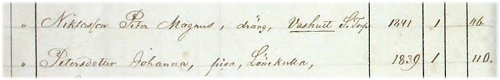 " Niklasson Peter Magnus, dräng, Vashult S. Torp 1841 1 116.
" Petersdotter Johanna, piga, Lönekulla, 1839 1 110.